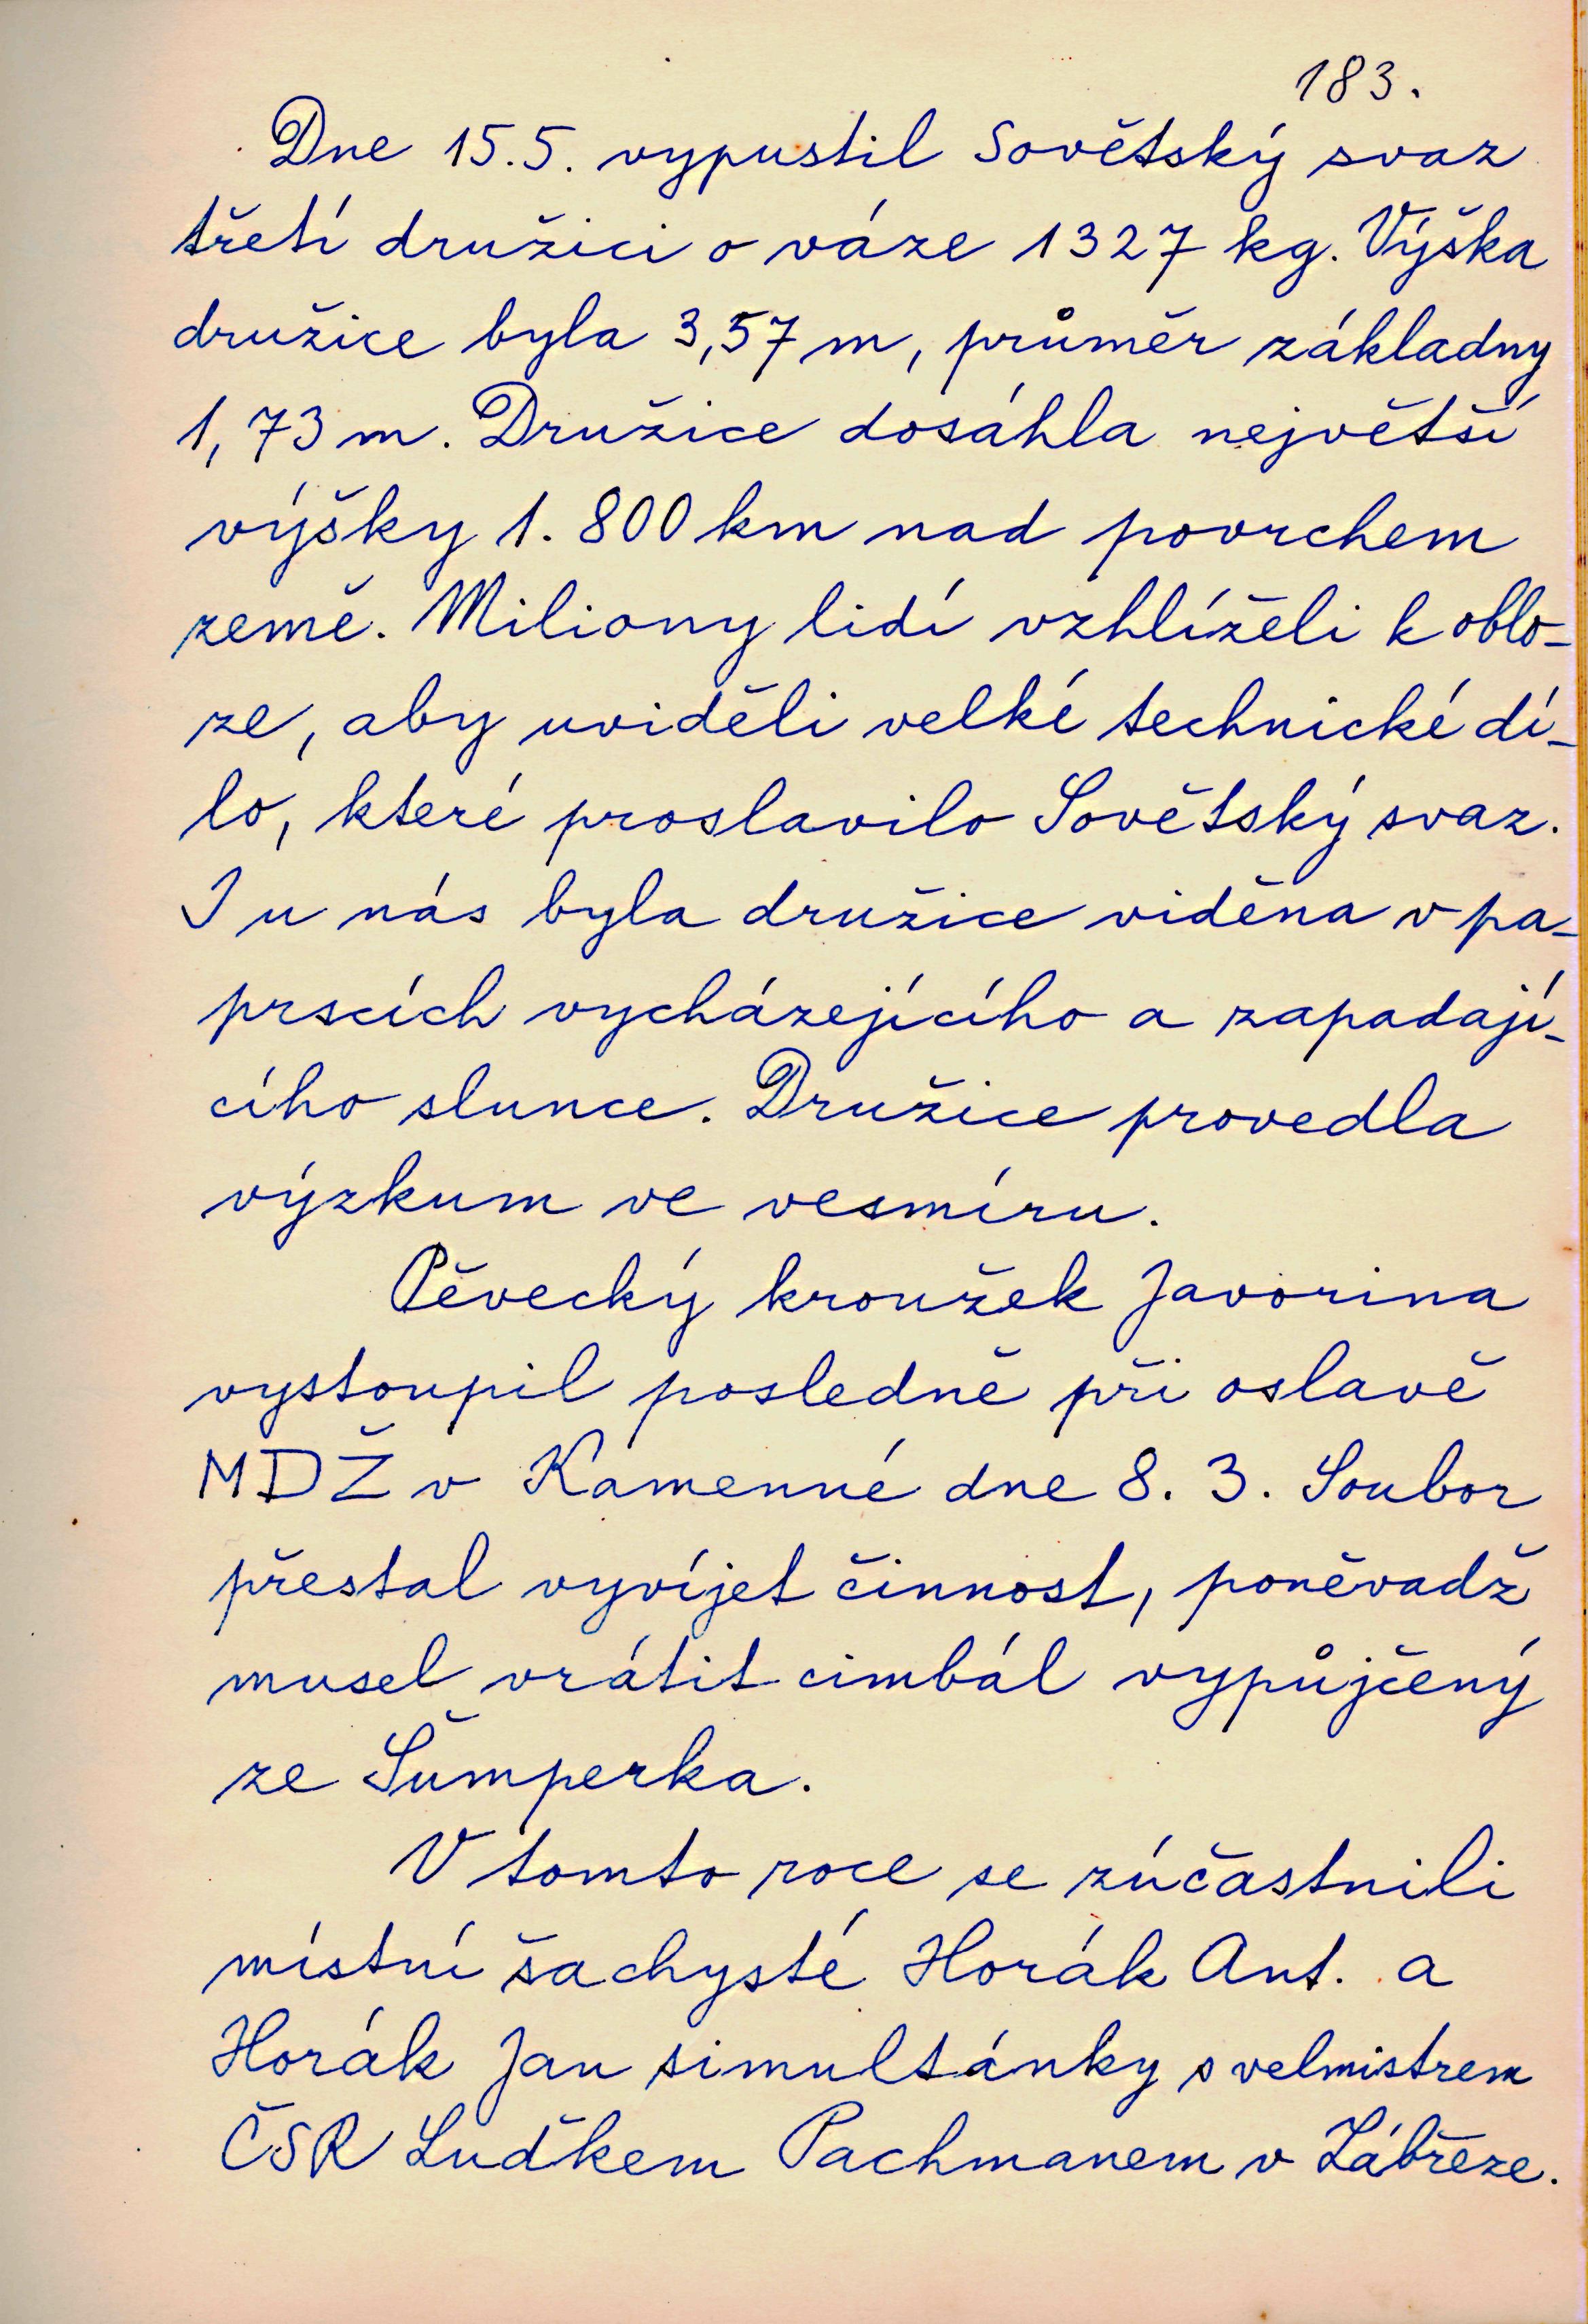 183.
Dne 15.5. vypustil Sovětský svaz
třetí družici o váze 1327 kg. Výška
družice byla 3,57 m, průměr základny
1,73 m. Družice dosáhla největší
výšky 1.800 km nad povrchem
země. Miliony lidí vzhlíželi k oblo-
ze, aby uviděli velké technické dí-
lo, které proslavilo Sovětský svaz.
I u nás byla družice viděna v pa-
prscích vycházejícího a zapadají-
cího slunce. Družice provedla
výzkum ve vesmíru.
Pěvecký kroužek Javorina
vystoupil posledně při oslavě
MDŽ v Kamenné dne 8. 3. Soubor
přestal vyvíjet činnost, poněvadž
musel vrátit cimbál vypůjčený
ze Šumperka.
V tomto roce se zúčastnili
místní šachysté Horák Ant. a
Horák Jan simultánky s velmistrem
ČSR Luďkem Pachmanem v Zábřeze.